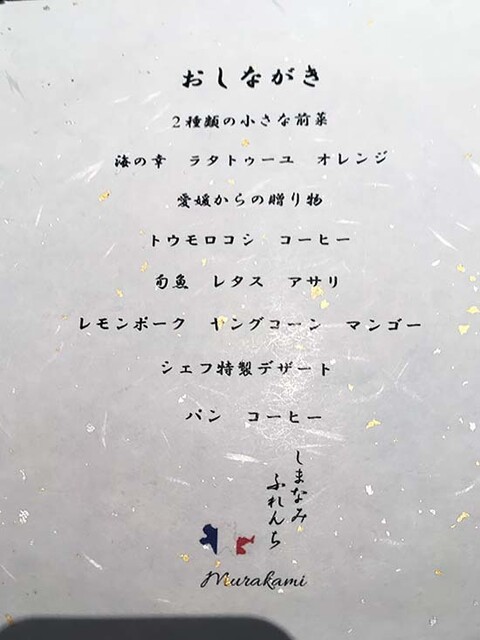 おしながき
2種類の小さな前菜
海の幸　ラタトゥーユ　オレンジ
愛媛からの贈り物
トウモロコシ　コーヒー
旬魚　レタス　アサリ
レモンポーク　ヤングコーン　マンゴー
シェフ特製デザート
パン　コーヒー
しまなみ
ふれんち
Murakami